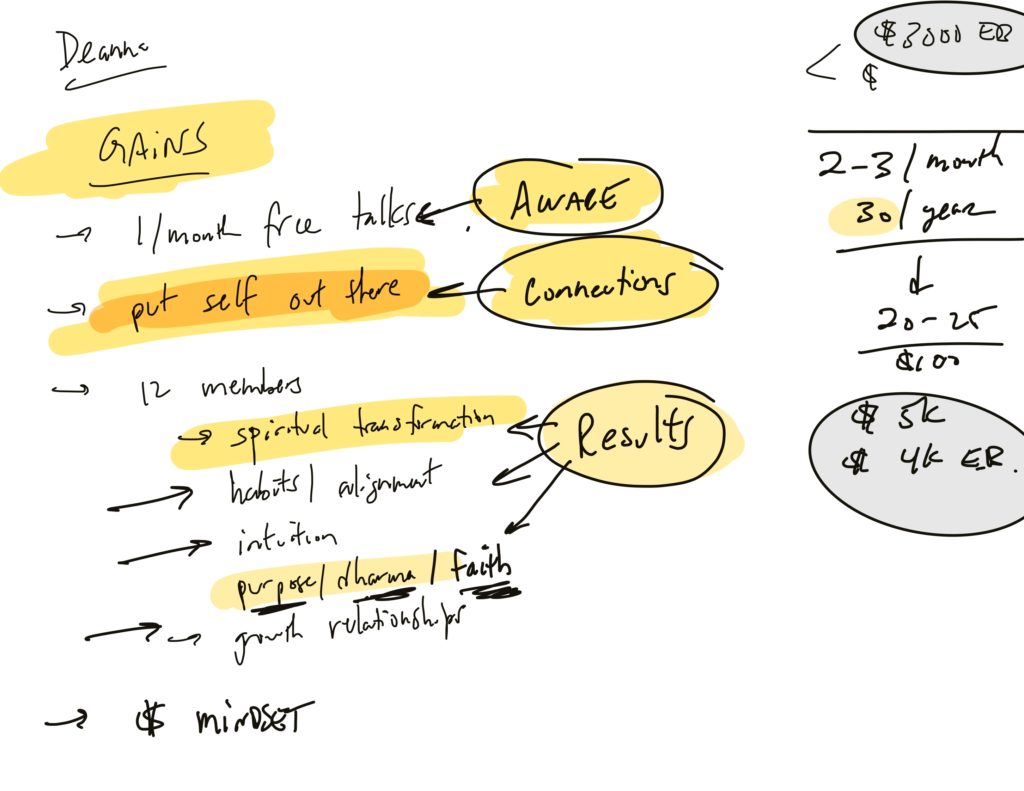 Deanna
GAINS
→ 1/month free talks ← AWARE
→ put self out there ← Connections
→ 12 members
→ spiritual transformation ← Results
→ habits/ alignment
→ intuition
purpose/ dharma / faith
→ → growth relationships
→ $ MINDSET
$3000 ER
< $
2-3/month
30/year
↓
20-25
$100
$ 5k
$ 4k ER.